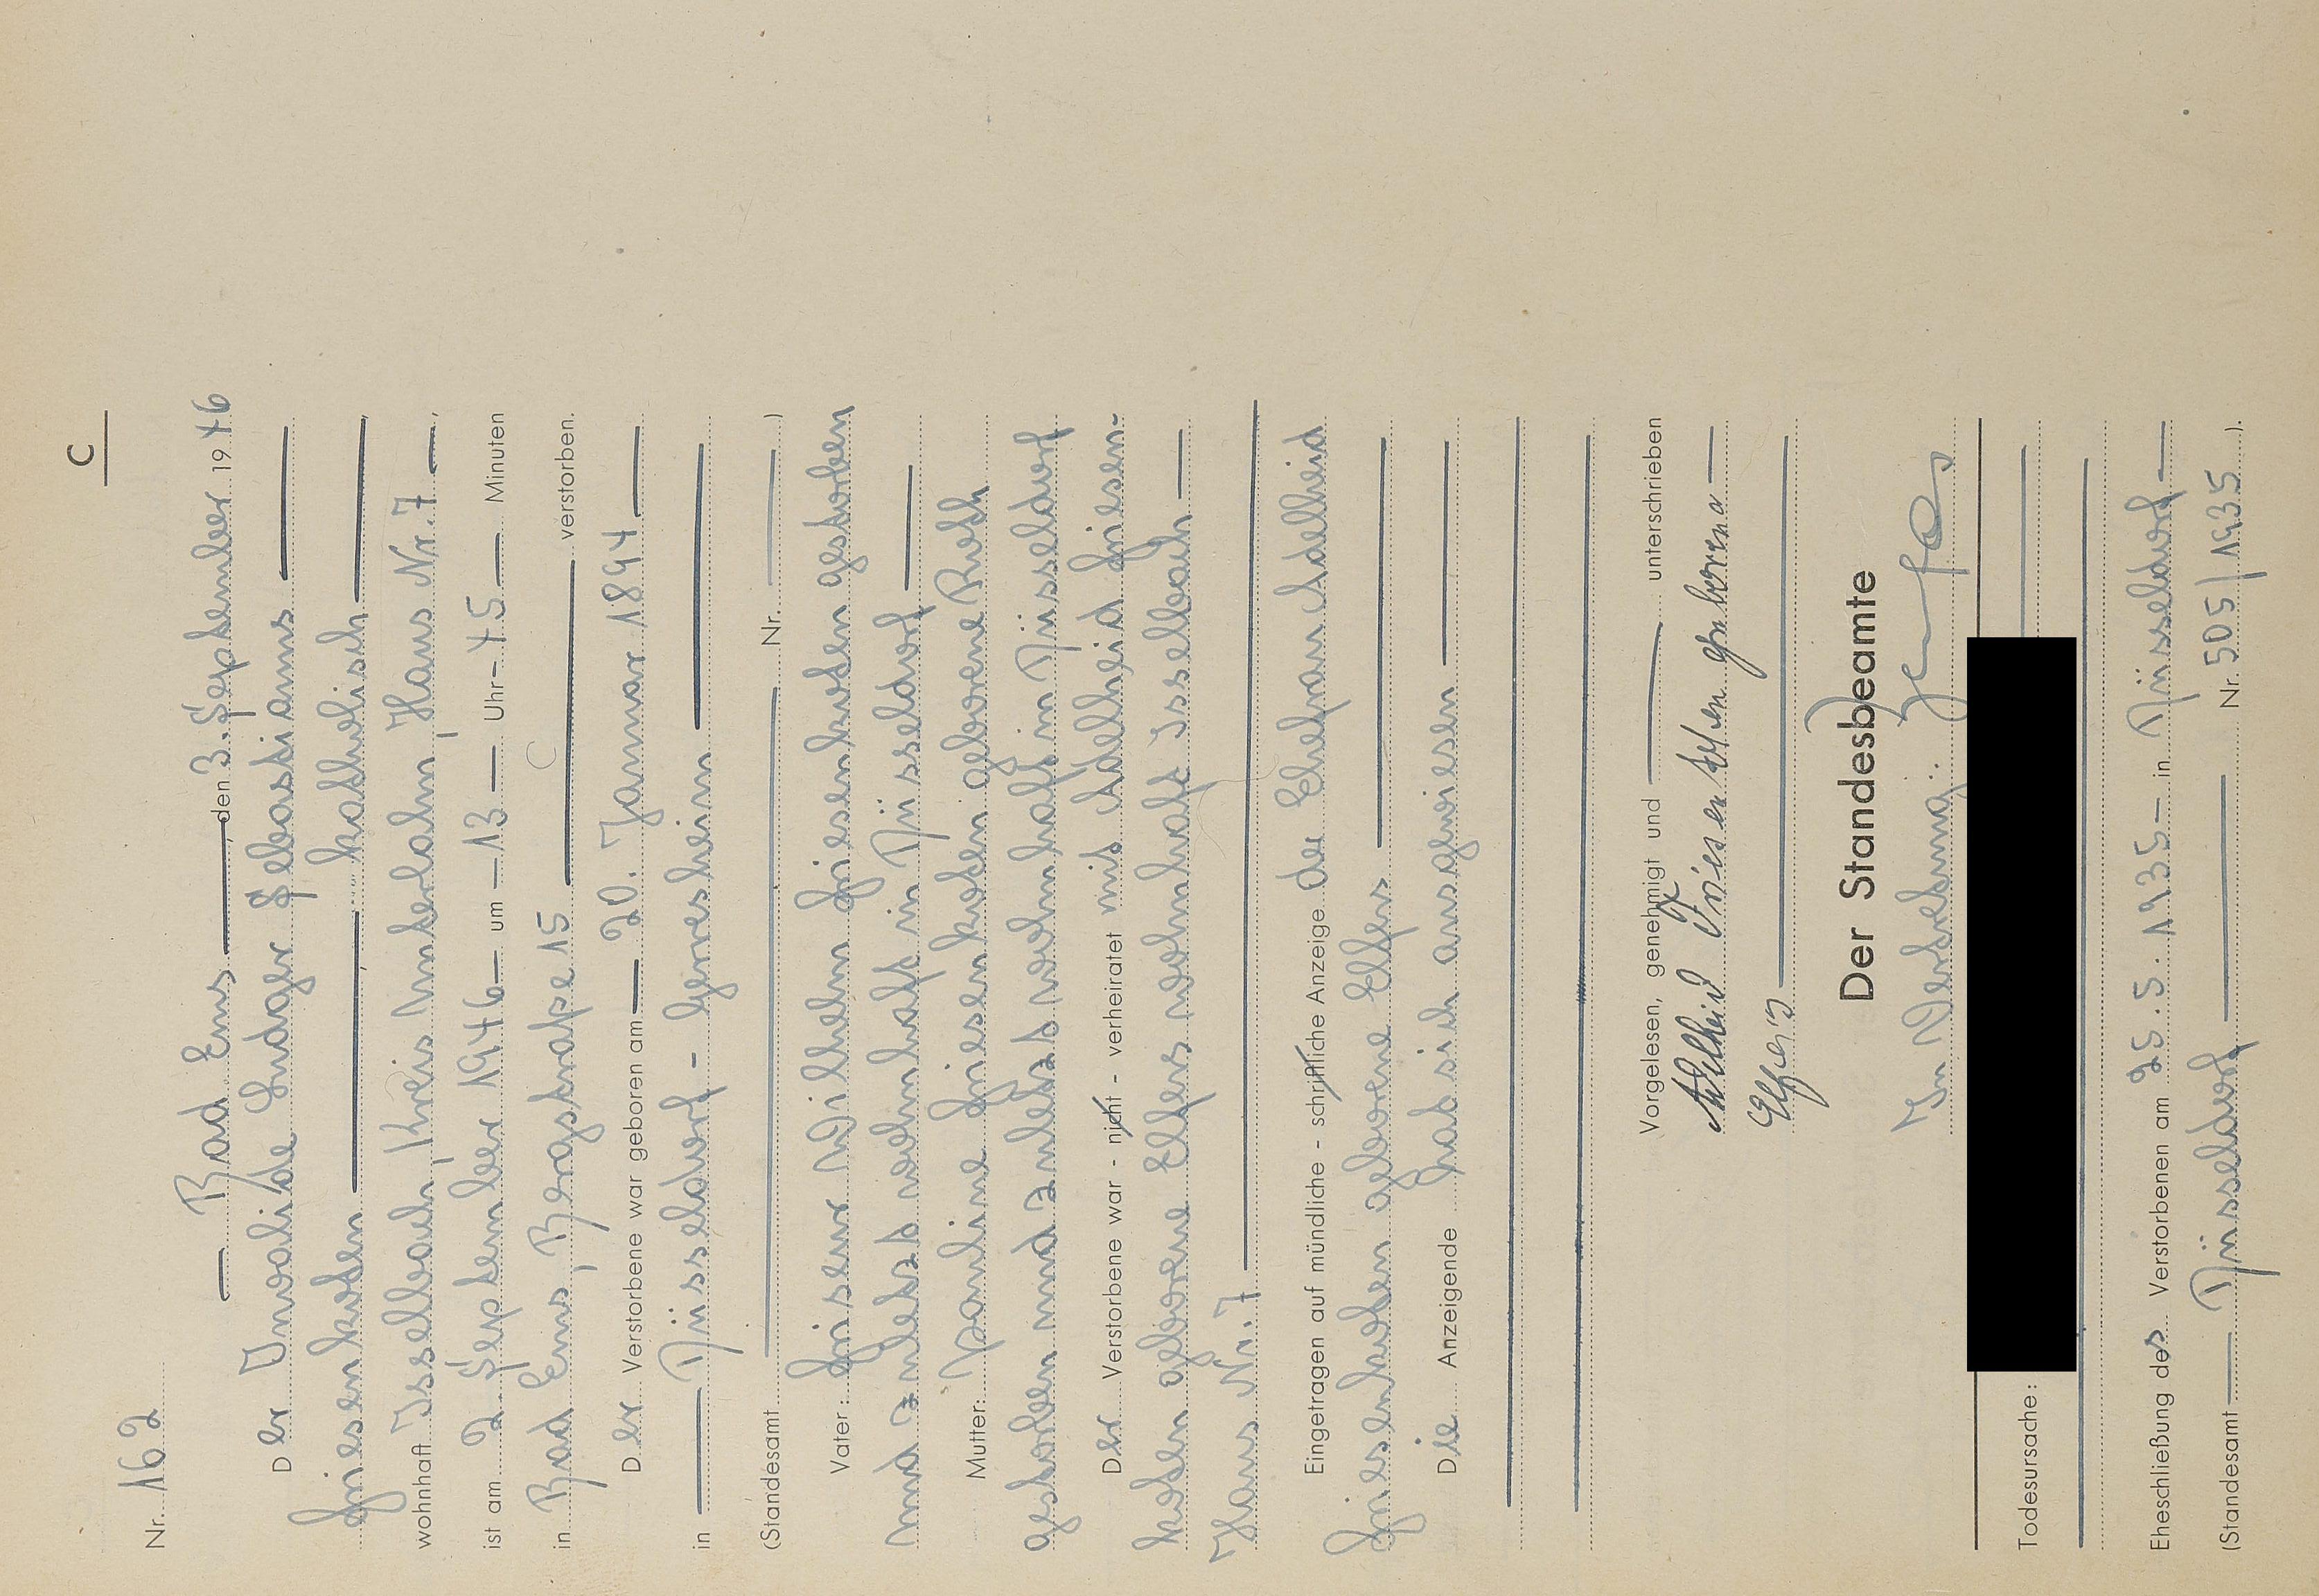 C
Nr. 162
— Bad Ems — den 3. September 1946
Der Invalide Ludger Sebastianus —
Friesenkoten — katholisch —
wohnhaft Isselbach, Kreis Unterlahn, Haus Nr. 7 —,
ist am 2. September 1946 — um — 13 — Uhr — 45 — Minuten
in Bad Ems, Bergstraße 15 — verstorben.
Der Verstorbene war geboren am — 20. Januar 1894 —
in — Düsseldorf - Gerresheim —
(Standesamt — Nr. — )
Vater: Friseur Wilhelm Friesenkoten gestorben
und zuletzt wohnhaft in Düsseldorf —
Mutter: Pauline Friesenkoten geborene Roth
gestorben und zuletzt wohnhaft in Düsseldorf
Der Verstorbene war - nicht - verheiratet mit Adelheid Friesen-
koten geborene Elfers wohnhaft Isselbach —
Haus Nr. 7 —
Eingetragen auf mündliche - schriftliche Anzeige der Ehefrau Adelheid
Friesenkoten geborene Elfers —
Die Anzeigende hat sich ausgewiesen —
Vorgelesen, genehmigt und — unterschrieben
Adelheid Friesenkoten geborene —
Elfers —
Der Standesbeamte
In Vertretung:
Todesursache:
Eheschließung des Verstorbenen am 25. 5. 1935 — in Düsseldorf —
(Standesamt — Düsseldorf — Nr. 505/1935 ).